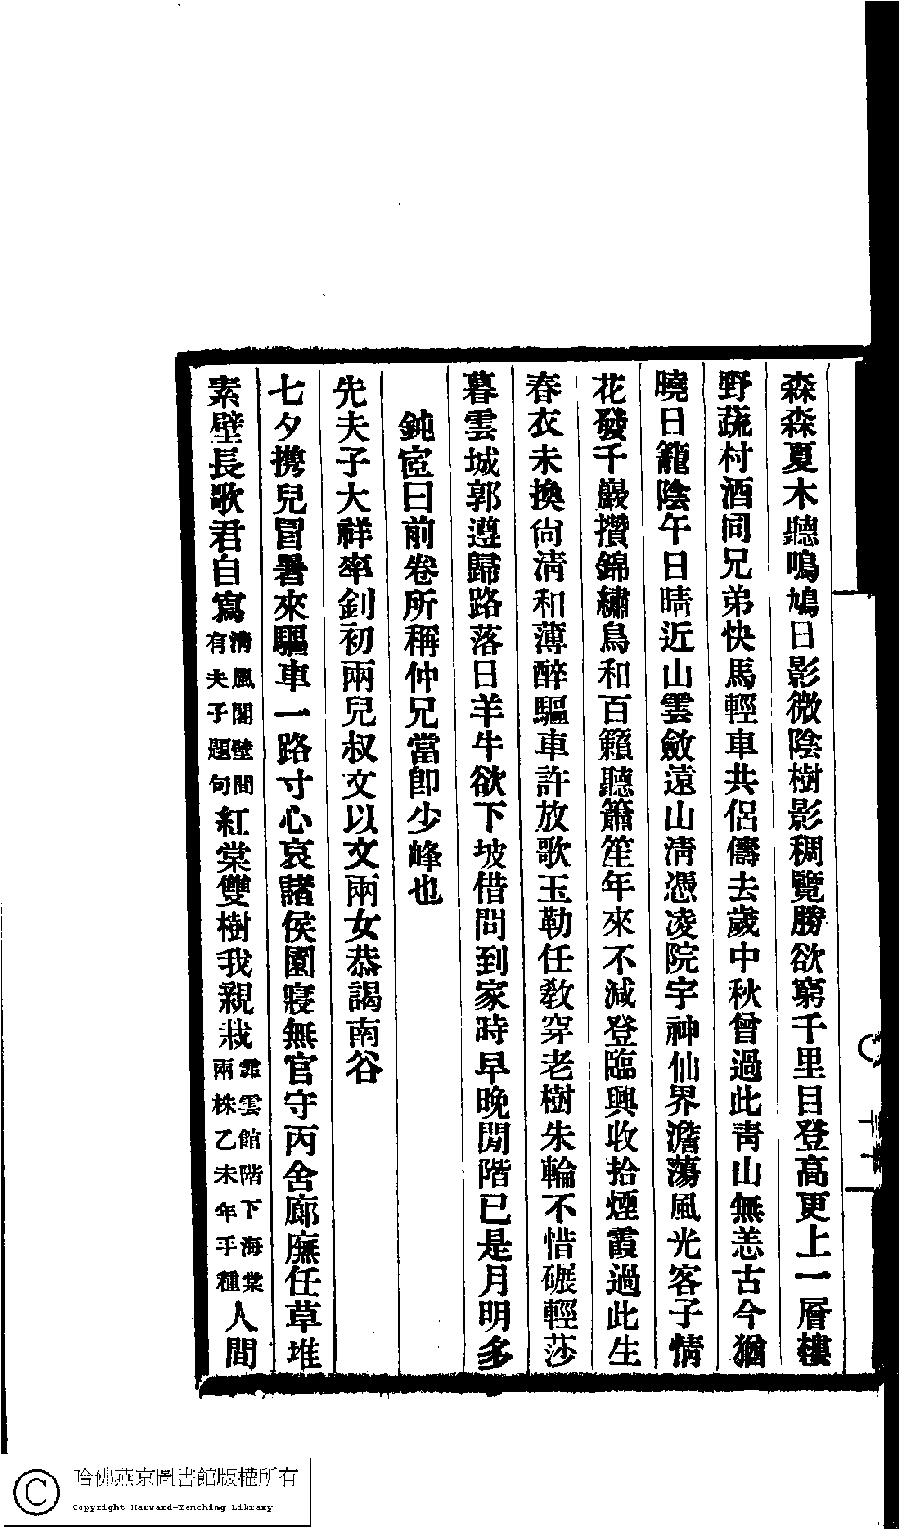 森森夏木聽鳴鳩日影微陰樹影稠覽勝欲窮千里目登高更上一層樓
野蔬村酒同兄弟快馬輕車共侶儔去歲中秋曾過此靑山無恙古今猶
曉日籠陰午日晴近山雲斂遠山淸憑凌院宇神仙界澹蕩風光客子情
花發千巖攢錦繡鳥和百籟聽簫笙年來不減登臨興收拾煙霞過此生
春衣未換尙淸和薄醉驅車許放歌玉勒任敎穿老樹朱輪不惜碾輕莎
暮雲城郭遵歸路落日羊牛欲下坡借問到家時早晚閒階已是月明多
鈍宧曰前卷所稱仲兄當卽少峰也
先夫子大祥率釗初兩兒叔文以文兩女恭謁南谷
七夕攜兒冒暑來驅車一路寸心哀諸侯園寢無官守丙舍廊廡任草堆
素壁長歌君自寫淸風閣壁間有夫子題句紅棠雙樹我親栽霏雲館階下海棠兩株乙未年手種人間
十
哈佛燕京圖書館版權所有
Copyright Harvard-Yenching Library